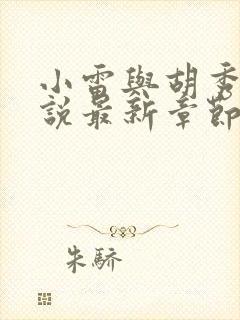 小雷與胡秀
說最新章節
朱驕